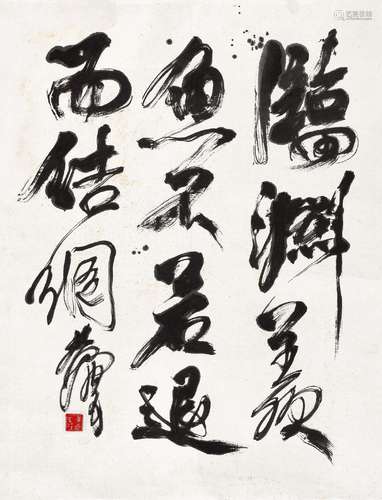 臨淵羨
魚不若退
而結網